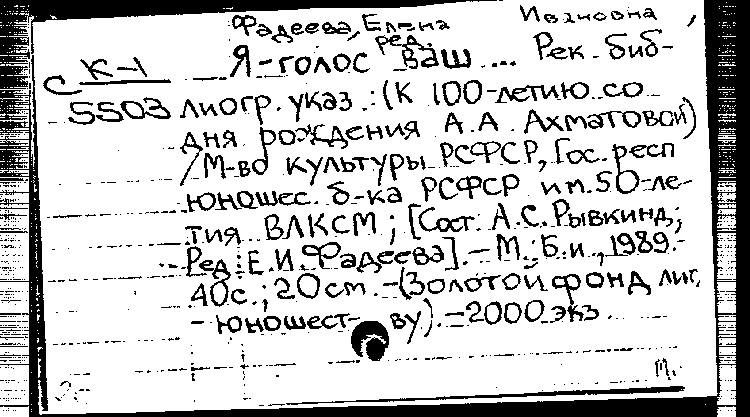 Фадеева, Елена Ивановна,
ред.
К-1 Я-голос ваш ... Рек. биб-
5503 лиогр. указ.: (К 100-летию со
дня рождения А.А. Ахматовой)
/М-во культуры РСФСР, Гос. респ
юношес. б-ка РСФСР им. 50-ле-
тия ВЛКСМ; [Сост. А.С. Рывкинд;
Ред.: Е.И. Фадеева]. - М.: Б.и., 1989.-
40с.; 20 cm. -(Золотой фонд лит.
- юношест- ву). -2000 экз.
М.